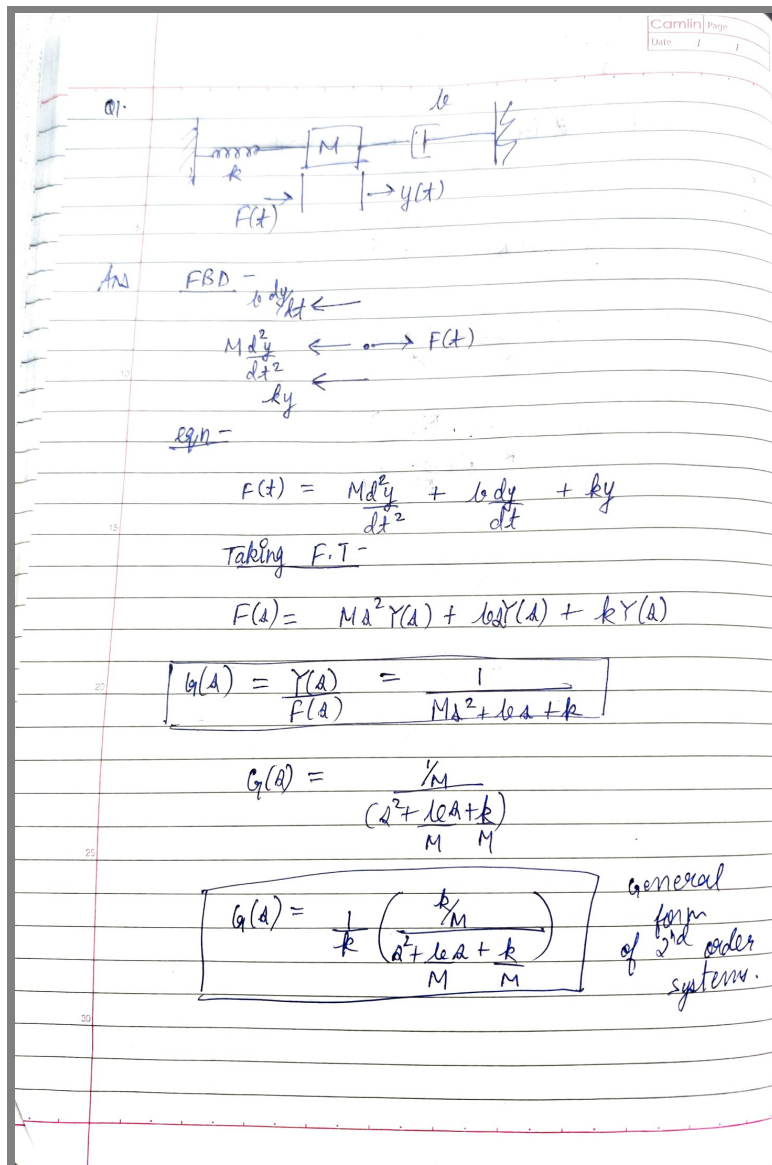 Camlin Page
Date / /
Q1.
b
M
k
F(t) → → y(t)
Ans FBD -
b dy/dt ←
M d²y/dt² ← • → F(t)
ky ←
eqn -
F(t) = Md²y/dt² + b dy/dt + ky
Taking F.T -
F(s) = Ms²Y(s) + bsY(s) + kY(s)
G(s) = Y(s)/F(s) = 1/(Ms² + bs + k)
G(s) = (1/M)/(s² + bs/M + k/M)
G(s) = 1/k ((k/M)/(s² + bs/M + k/M))
General
form
of 2nd order
systems.
5
10
15
20
25
30